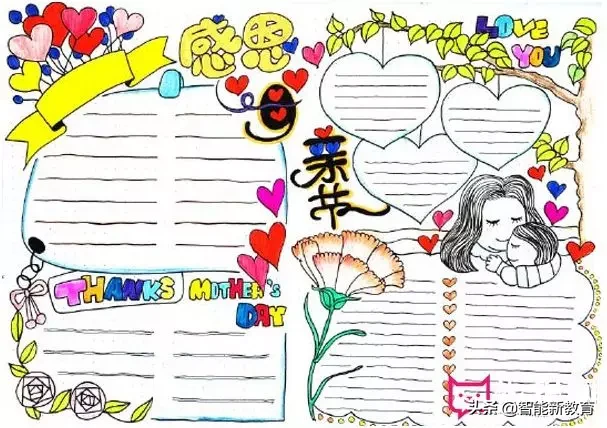 感恩
母
亲节
LOVE
YOU
THANKS
MOTHER'S
DAY
头条 @智能新教育